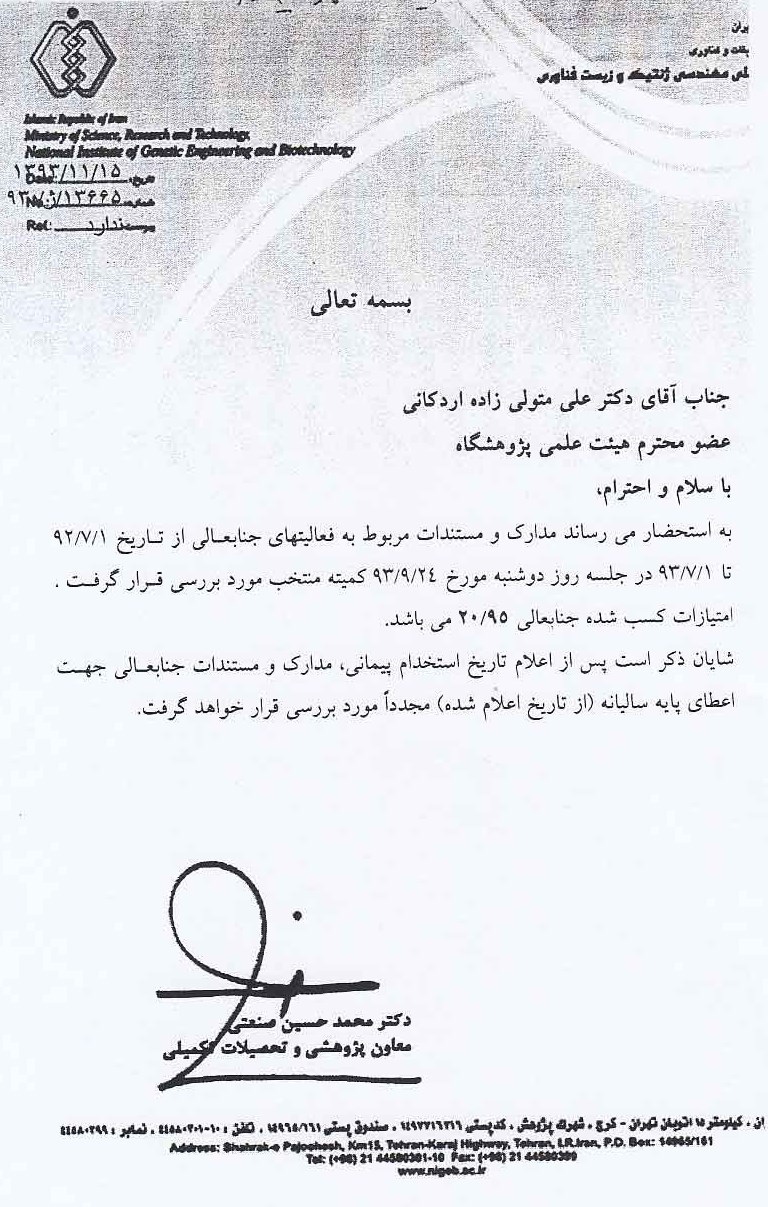 یران
یقات و فناوری
ملی مهندسی ژنتیک و زیست فناوری
Islamic Republic of Iran
Ministry of Science, Research and Technology,
National Institute of Genetic Engineering and Biotechnology
تاریخ: ۱۳۹۳/۱۱/۱۵ Date:
شماره: No:
پیوست: ندارد Ref:
بسمه تعالی
جناب آقای دکتر علی متولی زاده اردکانی
عضو محترم هیئت علمی پژوهشگاه
با سلام و احترام،
به استحضار می رساند مدارک و مستندات مربوط به فعالیتهای جنابعـالی از تـاریخ ۹۲/۷/۱
تا ۹۳/۷/۱ در جلسه روز دوشنبه مورخ ۹۳/۹/۲٤ کمیته منتخب مورد بررسی قـرار گرفـت .
امتیازات کسب شده جنابعالی ۲۰/۹۵ می باشد.
شایان ذکر است پس از اعلام تاریخ استخدام پیمانی، مدارک و مستندات جنابعـالی جهـت
اعطای پایه سالیانه (از تاریخ اعلام شده) مجدداً مورد بررسی قرار خواهد گرفت.
دکتر محمد حسین صنعتی
معاون پژوهشی و تحصیلات تکمیلی
ان ، کیلومتر ۱۵ اتوبان تهران - کرج ، شهرک پژوهش ، کدپستی ، صندوق پستی ۱۴۹۶۵/۱۶۱ ، تلفن : ۱۰-۴۴۵۸۰۳۰۱ ، نمابر : ۴۴۵۸۰۳۹۹
Address: Shahrak-e Pajoohesh, Km15, Tehran-Karaj Highway, Tehran, I.R.Iran, P.O. Box: 14965/161
Tel: (+98) 21 44580301-10 Fax: (+98) 21 44580399
www.nigeb.ac.ir